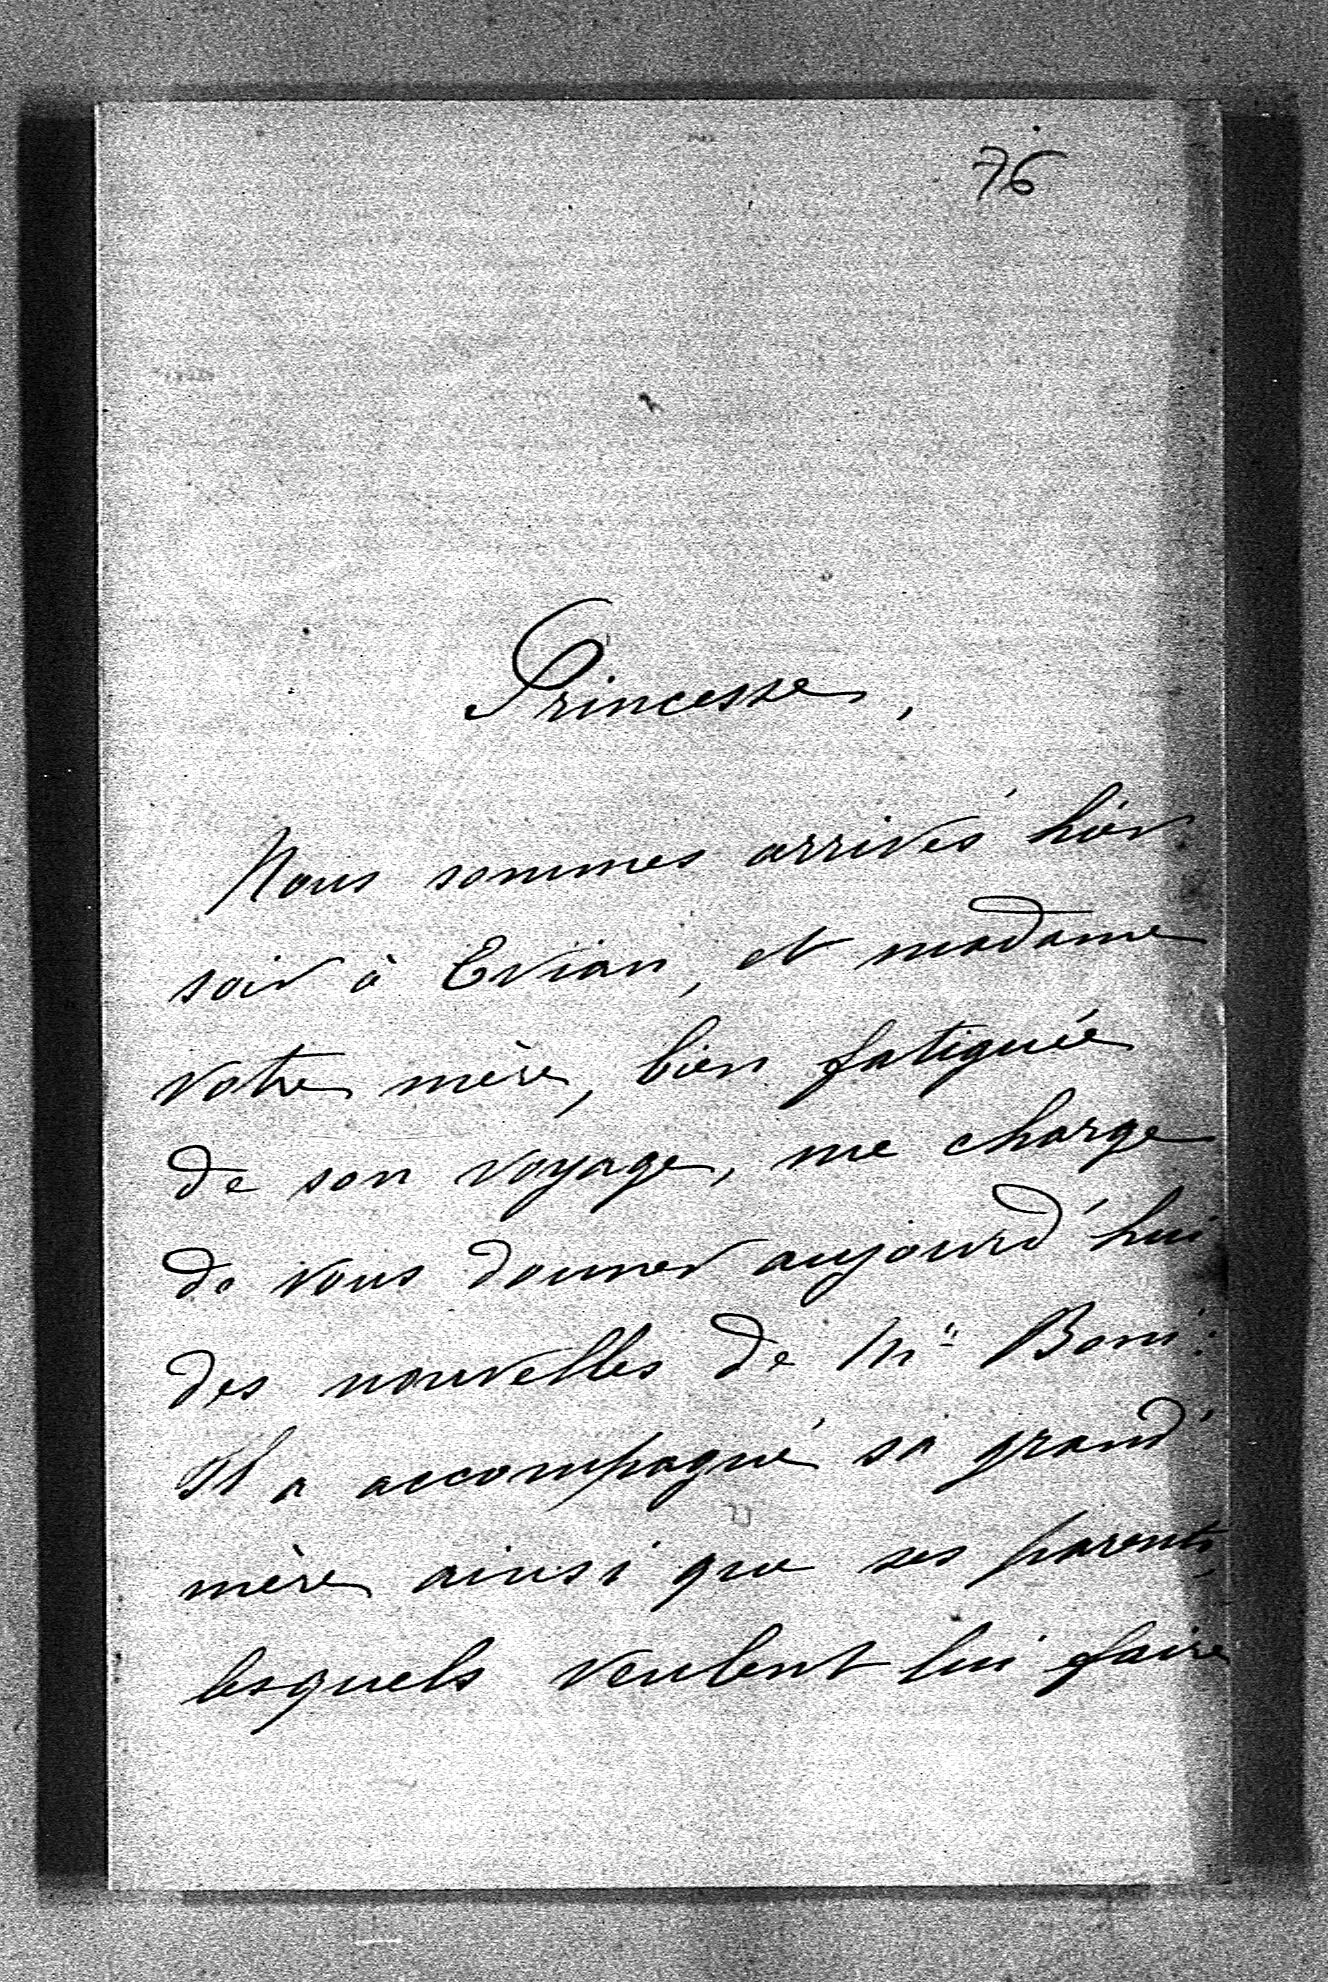 76
Princesse,
Nous sommes arrivés hier
soir à Evian, et madame
votre mère, bien fatiguée
de son voyage, me charge
de vous donner aujourd'hui
des nouvelles de Mr Boni:
Il a accompagné sa grand'
mère ainsi que ses parents,
lesquels veulent lui faire